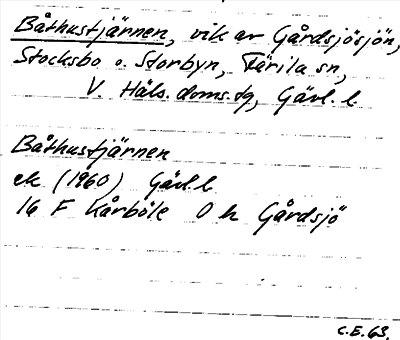 Båthustjärnen, vik av Gårdsjösjön,
Stocksbo o. Storbyn, Färila sn,
V. Häls. doms. dg, Gävl. l.
Båthustjärnen
ek (1960) Gävl. l
16 F Kårböle O h Gårdsjö
C.E. 63.